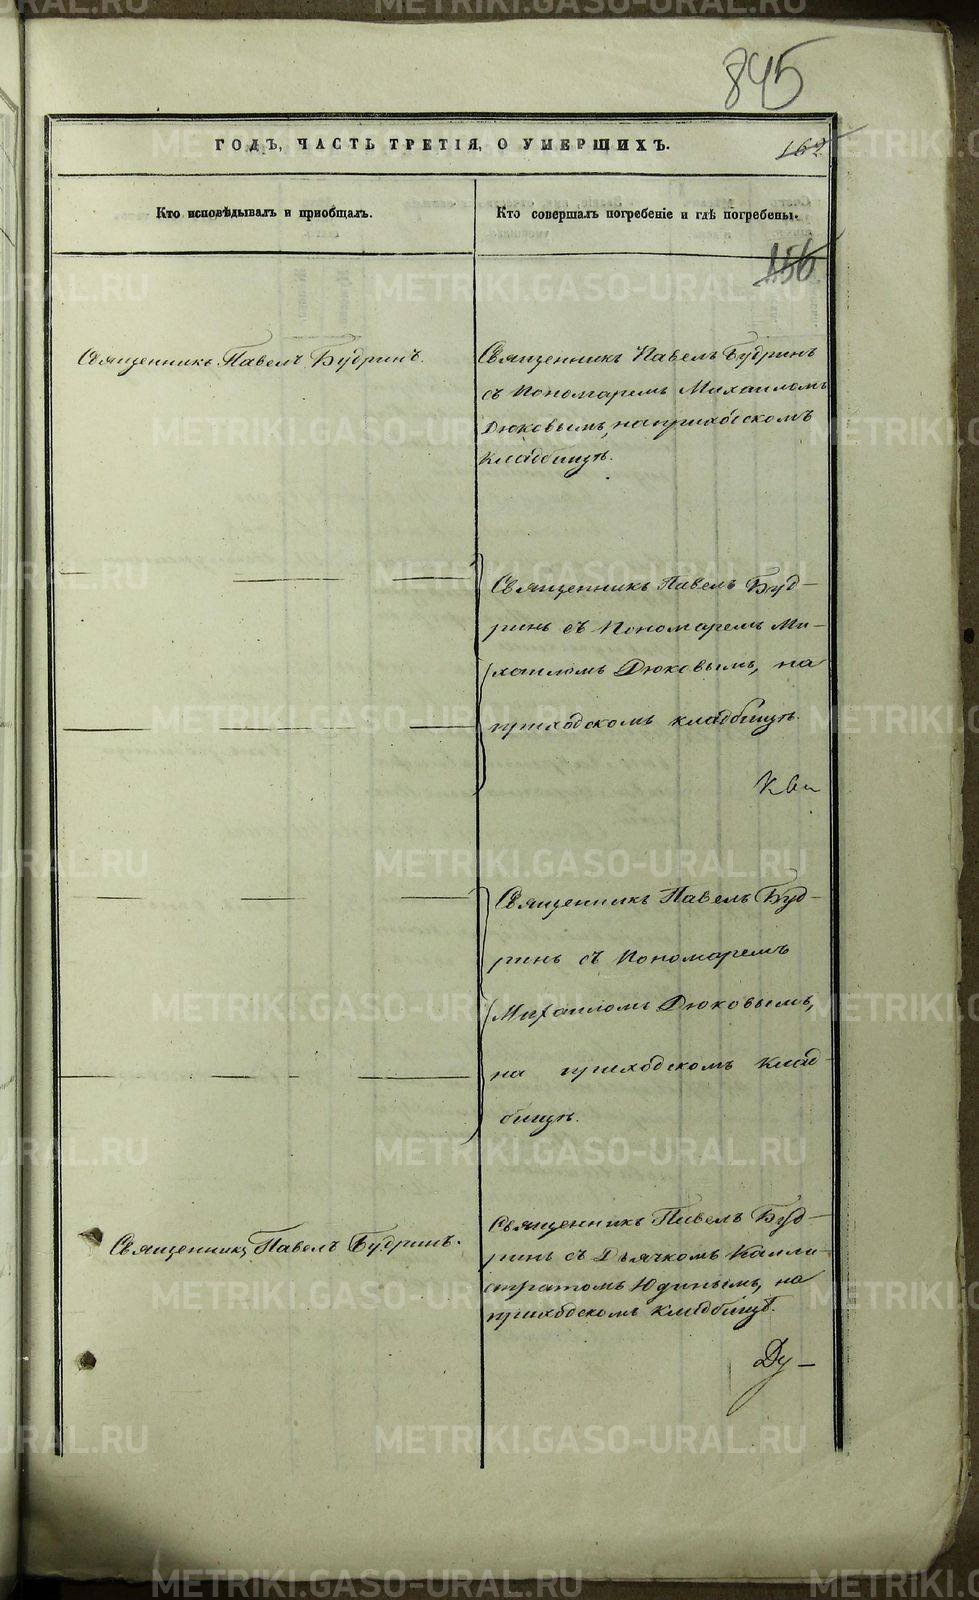 845
ГОДЪ, ЧАСТЬ ТРЕТІЯ, О УМЕРШИХЪ.
162
Кто исповѣдывалъ и пріобщалъ.
Кто совершалъ погребеніе и гдѣ погребены.
156
Священникъ Павелъ Будринъ.
Священникъ Павелъ Будринъ
съ Пономаремъ Михаиломъ
Дюковымъ, на приходскомъ
кладбищѣ.
Священникъ Павелъ Буд-
ринъ съ Пономаремъ Ми-
хаиломъ Дюковымъ, на
приходскомъ кладбищѣ.
Священникъ Павелъ Буд-
ринъ съ Пономаремъ
Михаиломъ Дюковымъ,
на приходскомъ клад-
бищѣ.
Священникъ Павелъ Будринъ.
Священникъ Павелъ Буд-
ринъ съ Дьячкомъ Калли-
стратомъ Юдинымъ, на
приходскомъ кладбищѣ.
Ду-
METRIKI.GASO-URAL.RU